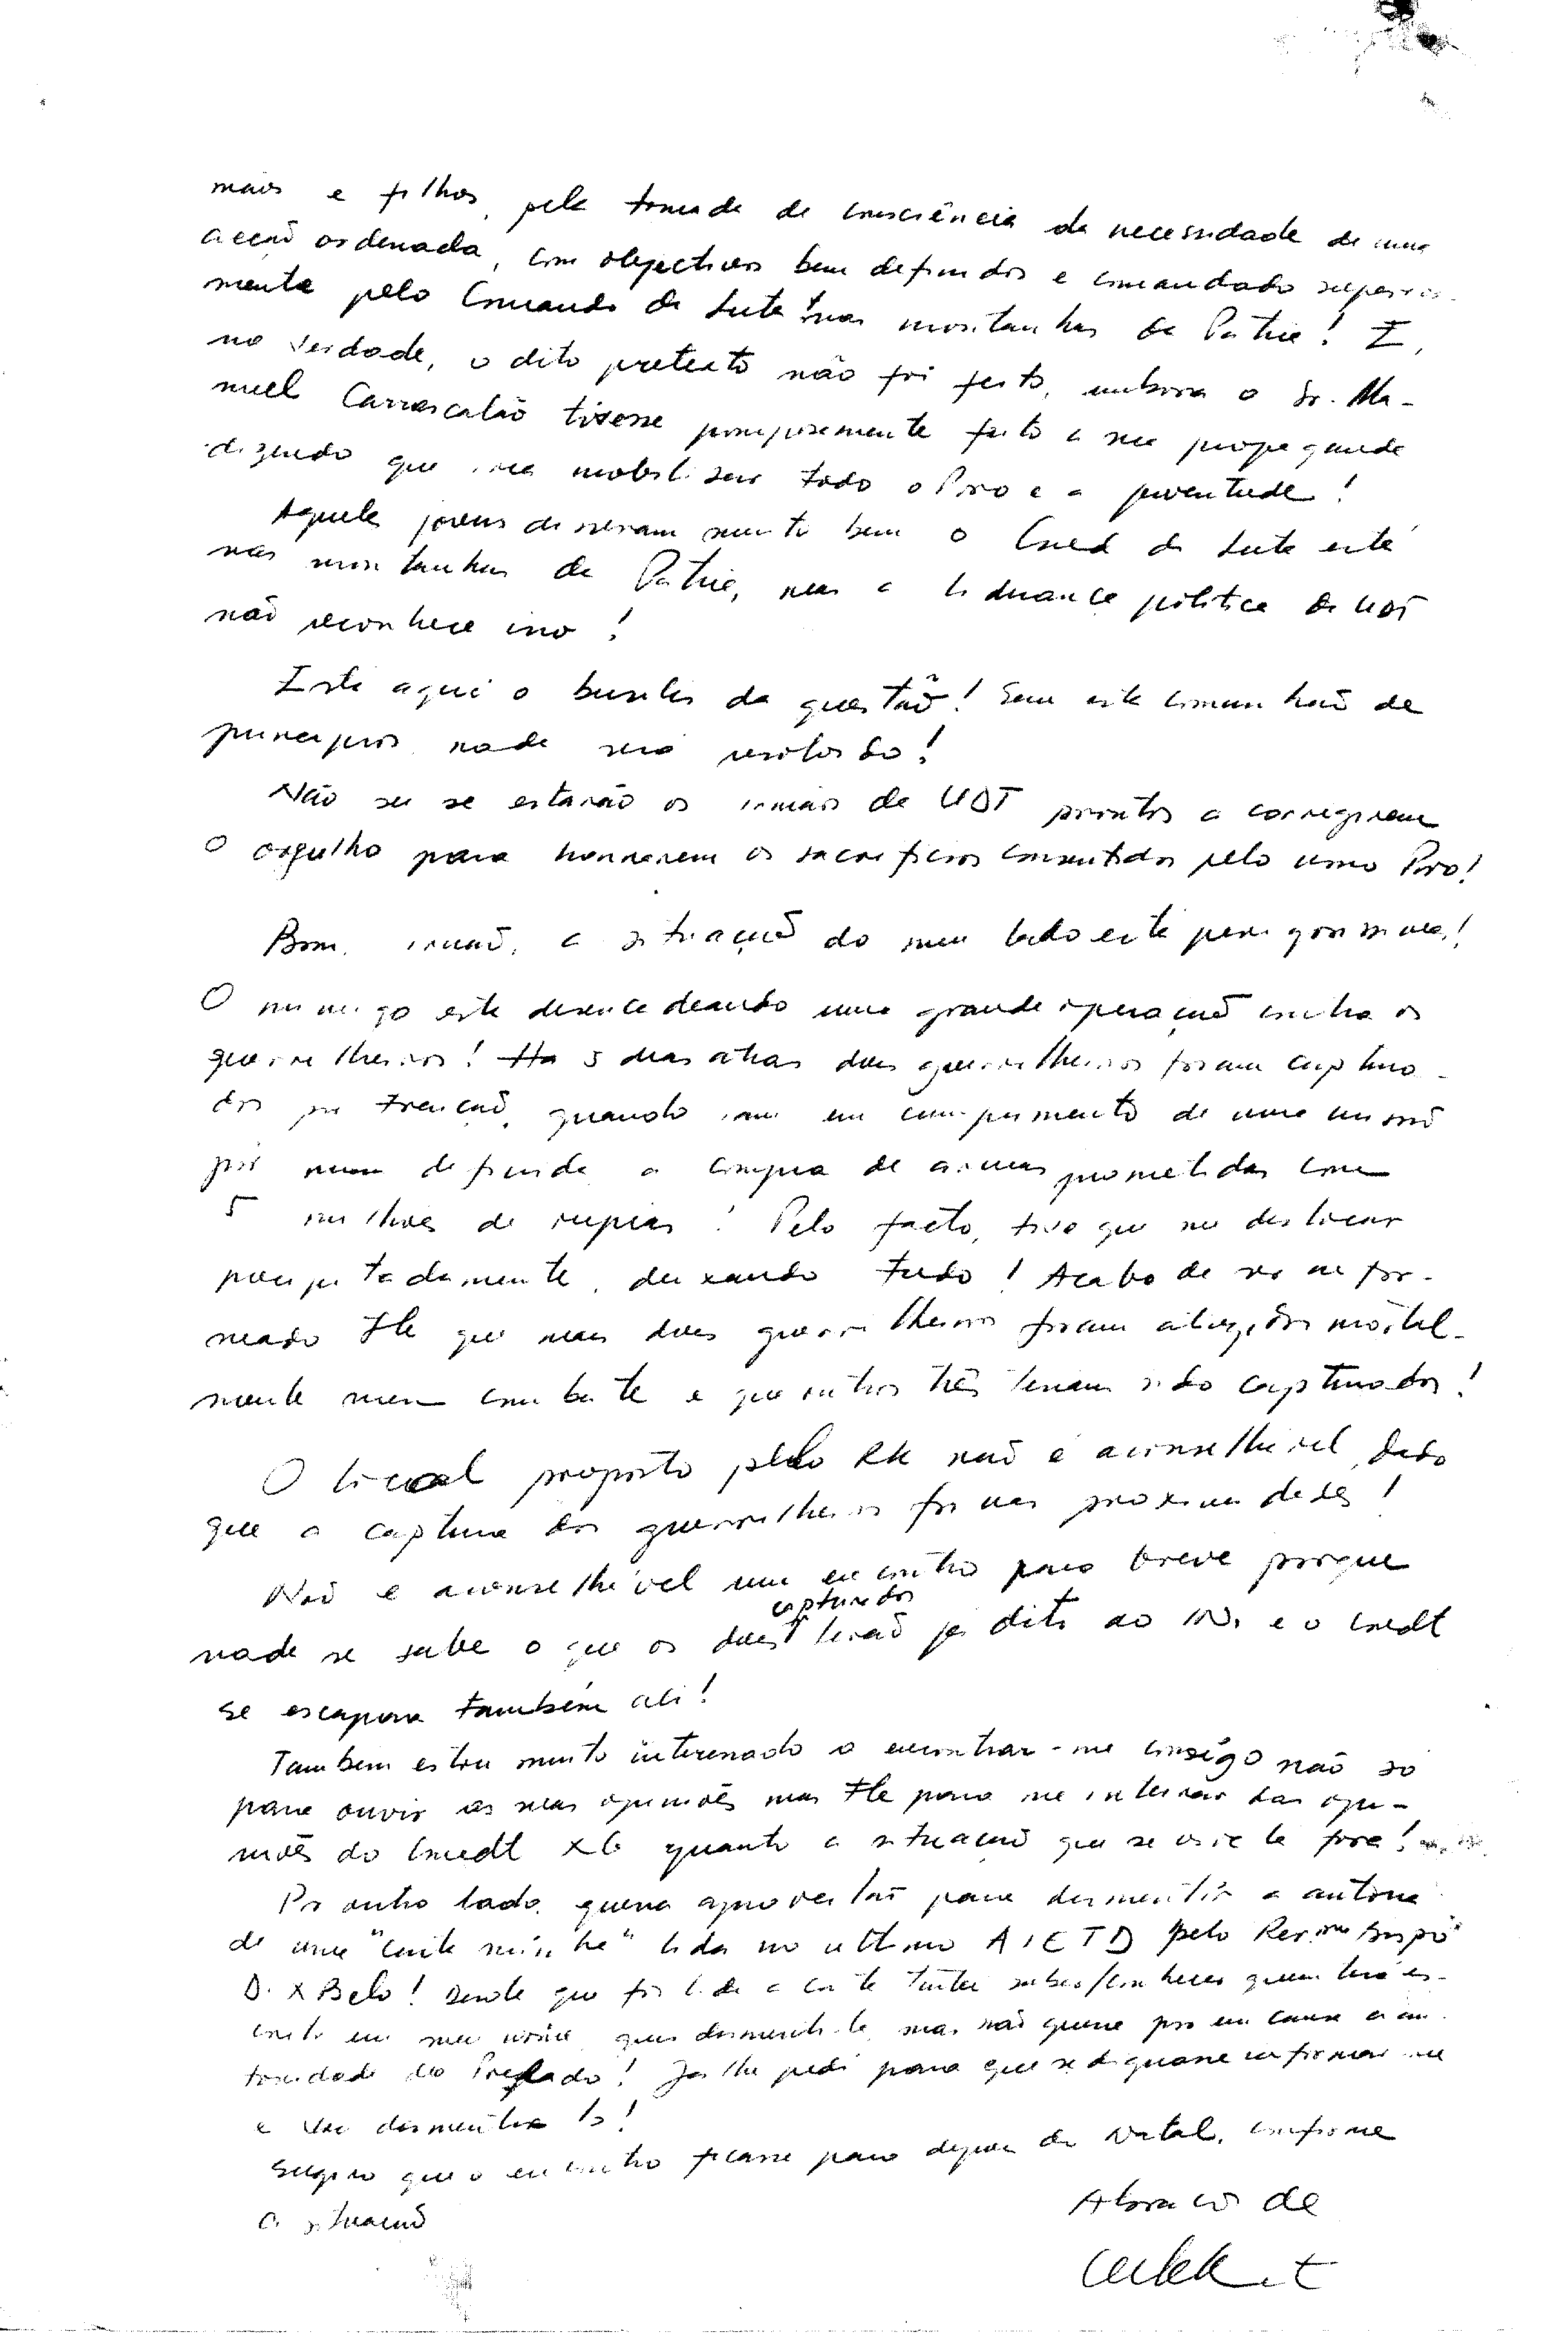 mais e filhos, pela tomada de consciência da necessidade de uma
acção ordenada, com objectivos bem definidos e comandado superior-
mente pelo Comando da Luta nas montanhas da Pátria! E,
na verdade, o dito pretexto não foi feito, embora o Sr. Ma-
nuel Carrascalão tivesse pomposamente feito a sua propaganda
dizendo que iria mobilizar todo o Povo e a juventude!
Aqueles jovens disseram muito bem o Cmd da Luta está
nas montanhas da Pátria, mas a liderança política da UDT
não reconhece isso!
Está aqui o busilis da questão! Sem esta comunhão de
princípios nada será resolvido!
Não sei se estarão os irmãos da UDT prontos a corrigirem
o orgulho para honrarem os sacrifícios consentidos pelo nosso Povo!
Bom, irmão, a situação do meu lado está perigosíssima!
O inimigo está desencadeando uma grande operação contra os
guerrilheiros! Há 5 dias atrás dois guerrilheiros foram captura-
dos por traição, quando iam em cumprimento de uma missão
por mim definida a compra de armas prometidas com
5 milhões de rupias! Pelo facto, tive que me deslocar
precipitadamente, deixando tudo! Acabo de ser infor-
mado tb que mais dois guerrilheiros foram atingidos mortal-
mente num combate e que outros três teriam sido capturados!
O local proposto pelo RK não é aconselhável, dado
que a captura dos guerrilheiros foi nas proximidades!
Não é aconselhável um encontro para breve porque
nada se sabe o que os dois capturados terão já dito ao IN. e o Cmdt
se escapara também ali!
Também estou muito interessado a encontrar-me consigo não só
para ouvir as suas opiniões mas tb para me inteirar das opi-
niões do Cmdt XG quanto a situação que se vive lá fora!
Por outro lado, queria aproveitar para desmentir a autoria
de uma "carta minha" lida no último AIETD pelo Rev.mo Bispo
D. X Belo! Desde que foi lida a carta tentei saber/conhecer quem terá es-
crito em meu nome, quis desmenti-la, mas não queria pôr em causa a au-
toridade do Prelado! Já lhe pedi para que se dignasse informar-me
e vou desmenti-lo!
Sugiro que o encontro ficasse para depois do Natal, conforme
a situação
Abraços de